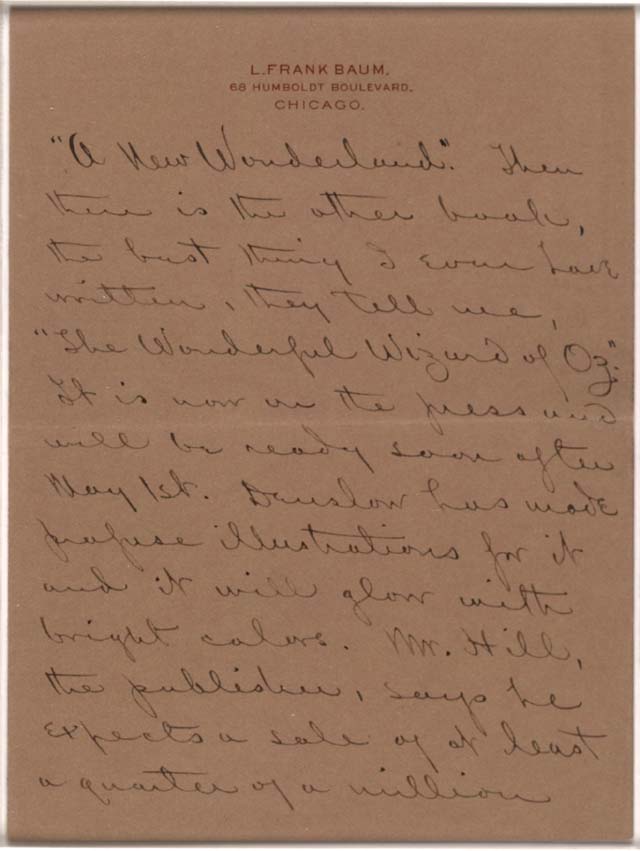 L. FRANK BAUM.
68 HUMBOLDT BOULEVARD,
CHICAGO.
"A New Wonderland". Then
there is the other book,
the best thing I ever have
written, they tell me,
"The Wonderful Wizard of Oz".
It is now on the press and
will be ready soon after
May 1st. Denslow has made
profuse illustrations for it
and it will glow with
bright colors. Mr. Hill,
the publisher, says he
expects a sale of at least
a quarter of a million